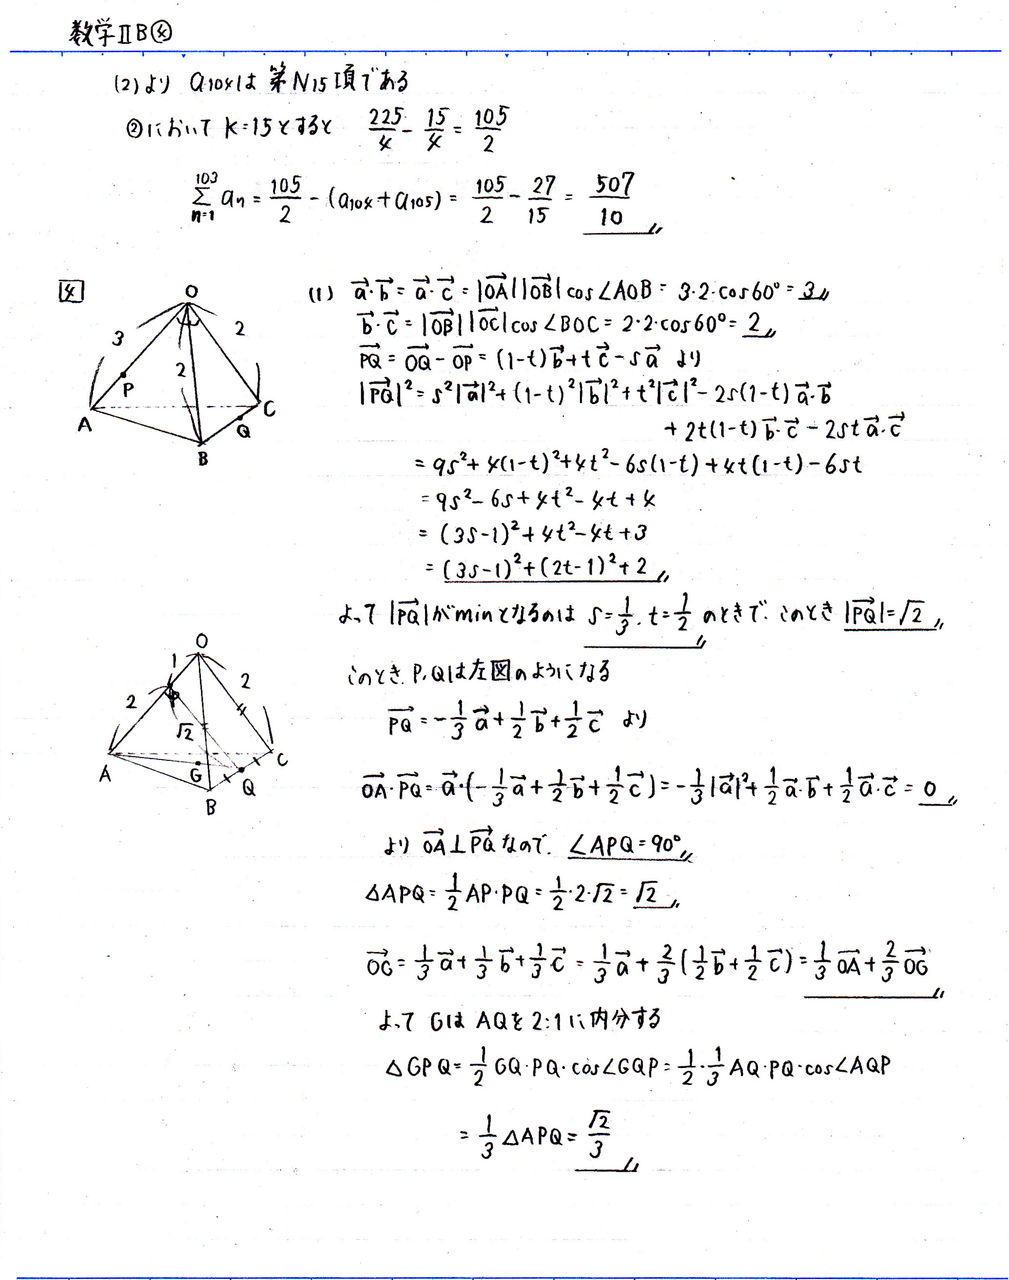 数学ⅡB④
(2)より a₁₀₄は 第N₁₅項である
②において K=15とすると 225/4 - 15/4 = 105/2
Σ[n=1→103] aₙ = 105/2 - (a₁₀₄+a₁₀₅) = 105/2 - 27/15 = 507/10
4
(1) a⃗・b⃗ = a⃗・c⃗ = |OA⃗||OB⃗|cos∠AOB = 3・2・cos60° = 3
b⃗・c⃗ = |OB⃗||OC⃗|cos∠BOC = 2・2・cos60° = 2
PQ⃗ = OQ⃗ - OP⃗ = (1-t)b⃗ + tc⃗ - sa⃗ より
|PQ⃗|² = s²|a⃗|² + (1-t)²|b⃗|² + t²|c⃗|² - 2s(1-t)a⃗・b⃗
+ 2t(1-t)b⃗・c⃗ - 2sta⃗・c⃗
= 9s² + 4(1-t)² + 4t² - 6s(1-t) + 4t(1-t) - 6st
= 9s² - 6s + 4t² - 4t + 4
= (3s-1)² + 4t² - 4t + 3
= (3s-1)² + (2t-1)² + 2
よって |PQ⃗|がminとなるのは s=1/3, t=1/2 のときで、このとき |PQ⃗|=√2
このとき P,Qは左図のようになる
PQ⃗ = -1/3 a⃗ + 1/2 b⃗ + 1/2 c⃗ より
OA⃗・PQ⃗ = a⃗・(-1/3 a⃗ + 1/2 b⃗ + 1/2 c⃗) = -1/3|a⃗|² + 1/2 a⃗・b⃗ + 1/2 a⃗・c⃗ = 0
より OA⃗⊥PQ⃗ なので、∠APQ=90°
△APQ = 1/2 AP・PQ = 1/2・2・√2 = √2
OG⃗ = 1/3 a⃗ + 1/3 b⃗ + 1/3 c⃗ = 1/3 a⃗ + 2/3(1/2 b⃗ + 1/2 c⃗) = 1/3 OA⃗ + 2/3 OG⃗
よって GはAQを2:1に内分する
△GPQ = 1/2 GQ・PQ・cos∠GQP = 1/2・1/3 AQ・PQ・cos∠AQP
= 1/3 △APQ = √2/3
O
3
2
2
P
A
C
Q
B
O
1
2
2
P
√2
A
G
C
B
Q